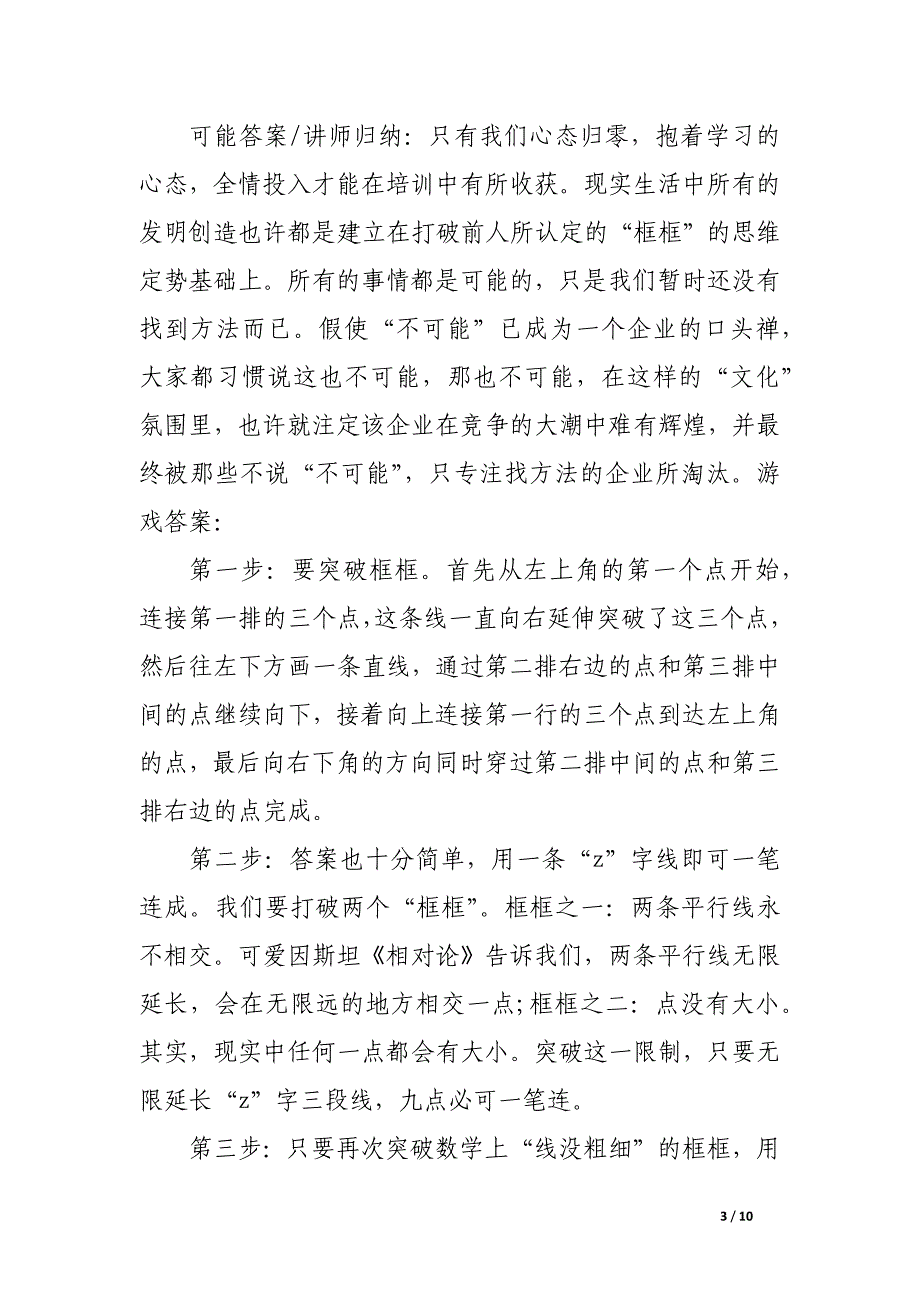 可能答案/讲师归纳：只有我们心态归零，抱着学习的
心态，全情投入才能在培训中有所收获。现实生活中所有的
发明创造也许都是建立在打破前人所认定的“框框”的思维
定势基础上。所有的事情都是可能的，只是我们暂时还没有
找到方法而已。假使“不可能”已成为一个企业的口头禅，
大家都习惯说这也不可能，那也不可能，在这样的“文化”
氛围里，也许就注定该企业在竞争的大潮中难有辉煌，并最
终被那些不说“不可能”，只专注找方法的企业所淘汰。游
戏答案：
第一步：要突破框框。首先从左上角的第一个点开始，
连接第一排的三个点，这条线一直向右延伸突破了这三个点，
然后往左下方画一条直线，通过第二排右边的点和第三排中
间的点继续向下，接着向上连接第一行的三个点到达左上角
的点，最后向右下角的方向同时穿过第二排中间的点和第三
排右边的点完成。
第二步：答案也十分简单，用一条“z”字线即可一笔
连成。我们要打破两个“框框”。框框之一：两条平行线永
不相交。可爱因斯坦《相对论》告诉我们，两条平行线无限
延长，会在无限远的地方相交一点；框框之二：点没有大小。
其实，现实中任何一点都会有大小。突破这一限制，只要无
限延长“z”字三段线，九点必可一笔连。
第三步：只要再次突破数学上“线没粗细”的框框，用
3 / 10